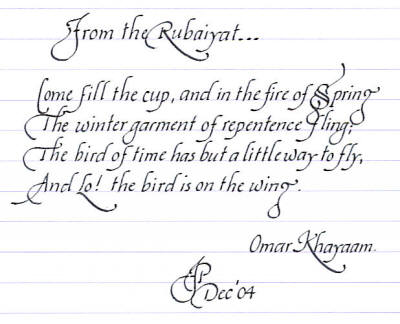 From the Rubaiyat...
Come fill the cup, and in the fire of Spring
The winter garment of repentence fling;
The bird of time has but a little way to fly,
And Lo! the bird is on the wing.
Omar Khayaam.
Dec '04